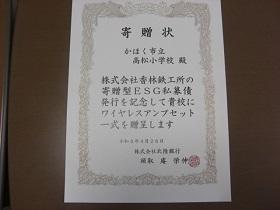 寄贈状
かほく市立
高松小学校 殿
株式会社香林鉄工所の
寄贈型ESG私募債
発行を記念して貴校に
ワイヤレスアンプセット
一式を贈呈します
株式会社北陸銀行
頭取 庵 栄伸